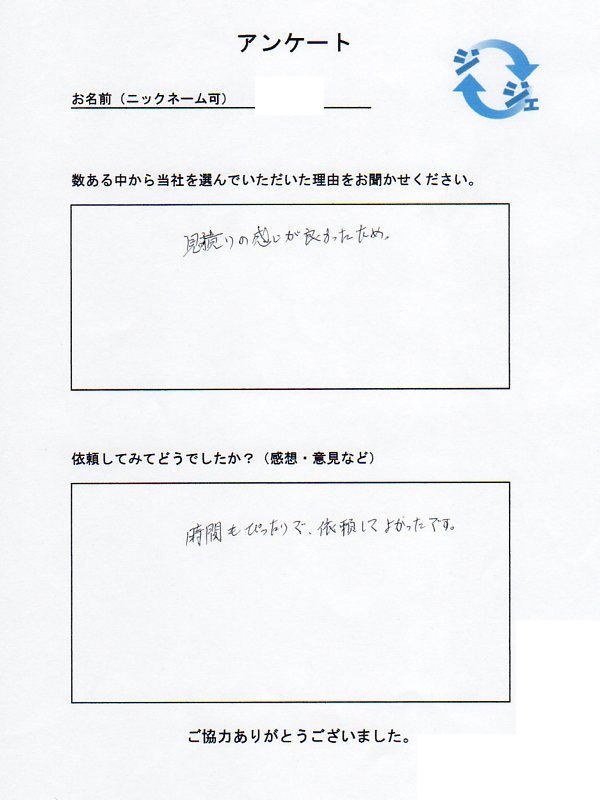 アンケート
ジジェ
お名前（ニックネーム可）
数ある中から当社を選んでいただいた理由をお聞かせください。
見積りの感じが良かったため。
依頼してみてどうでしたか？（感想・意見など）
時間もぴったりで、依頼してよかったです。
ご協力ありがとうございました。